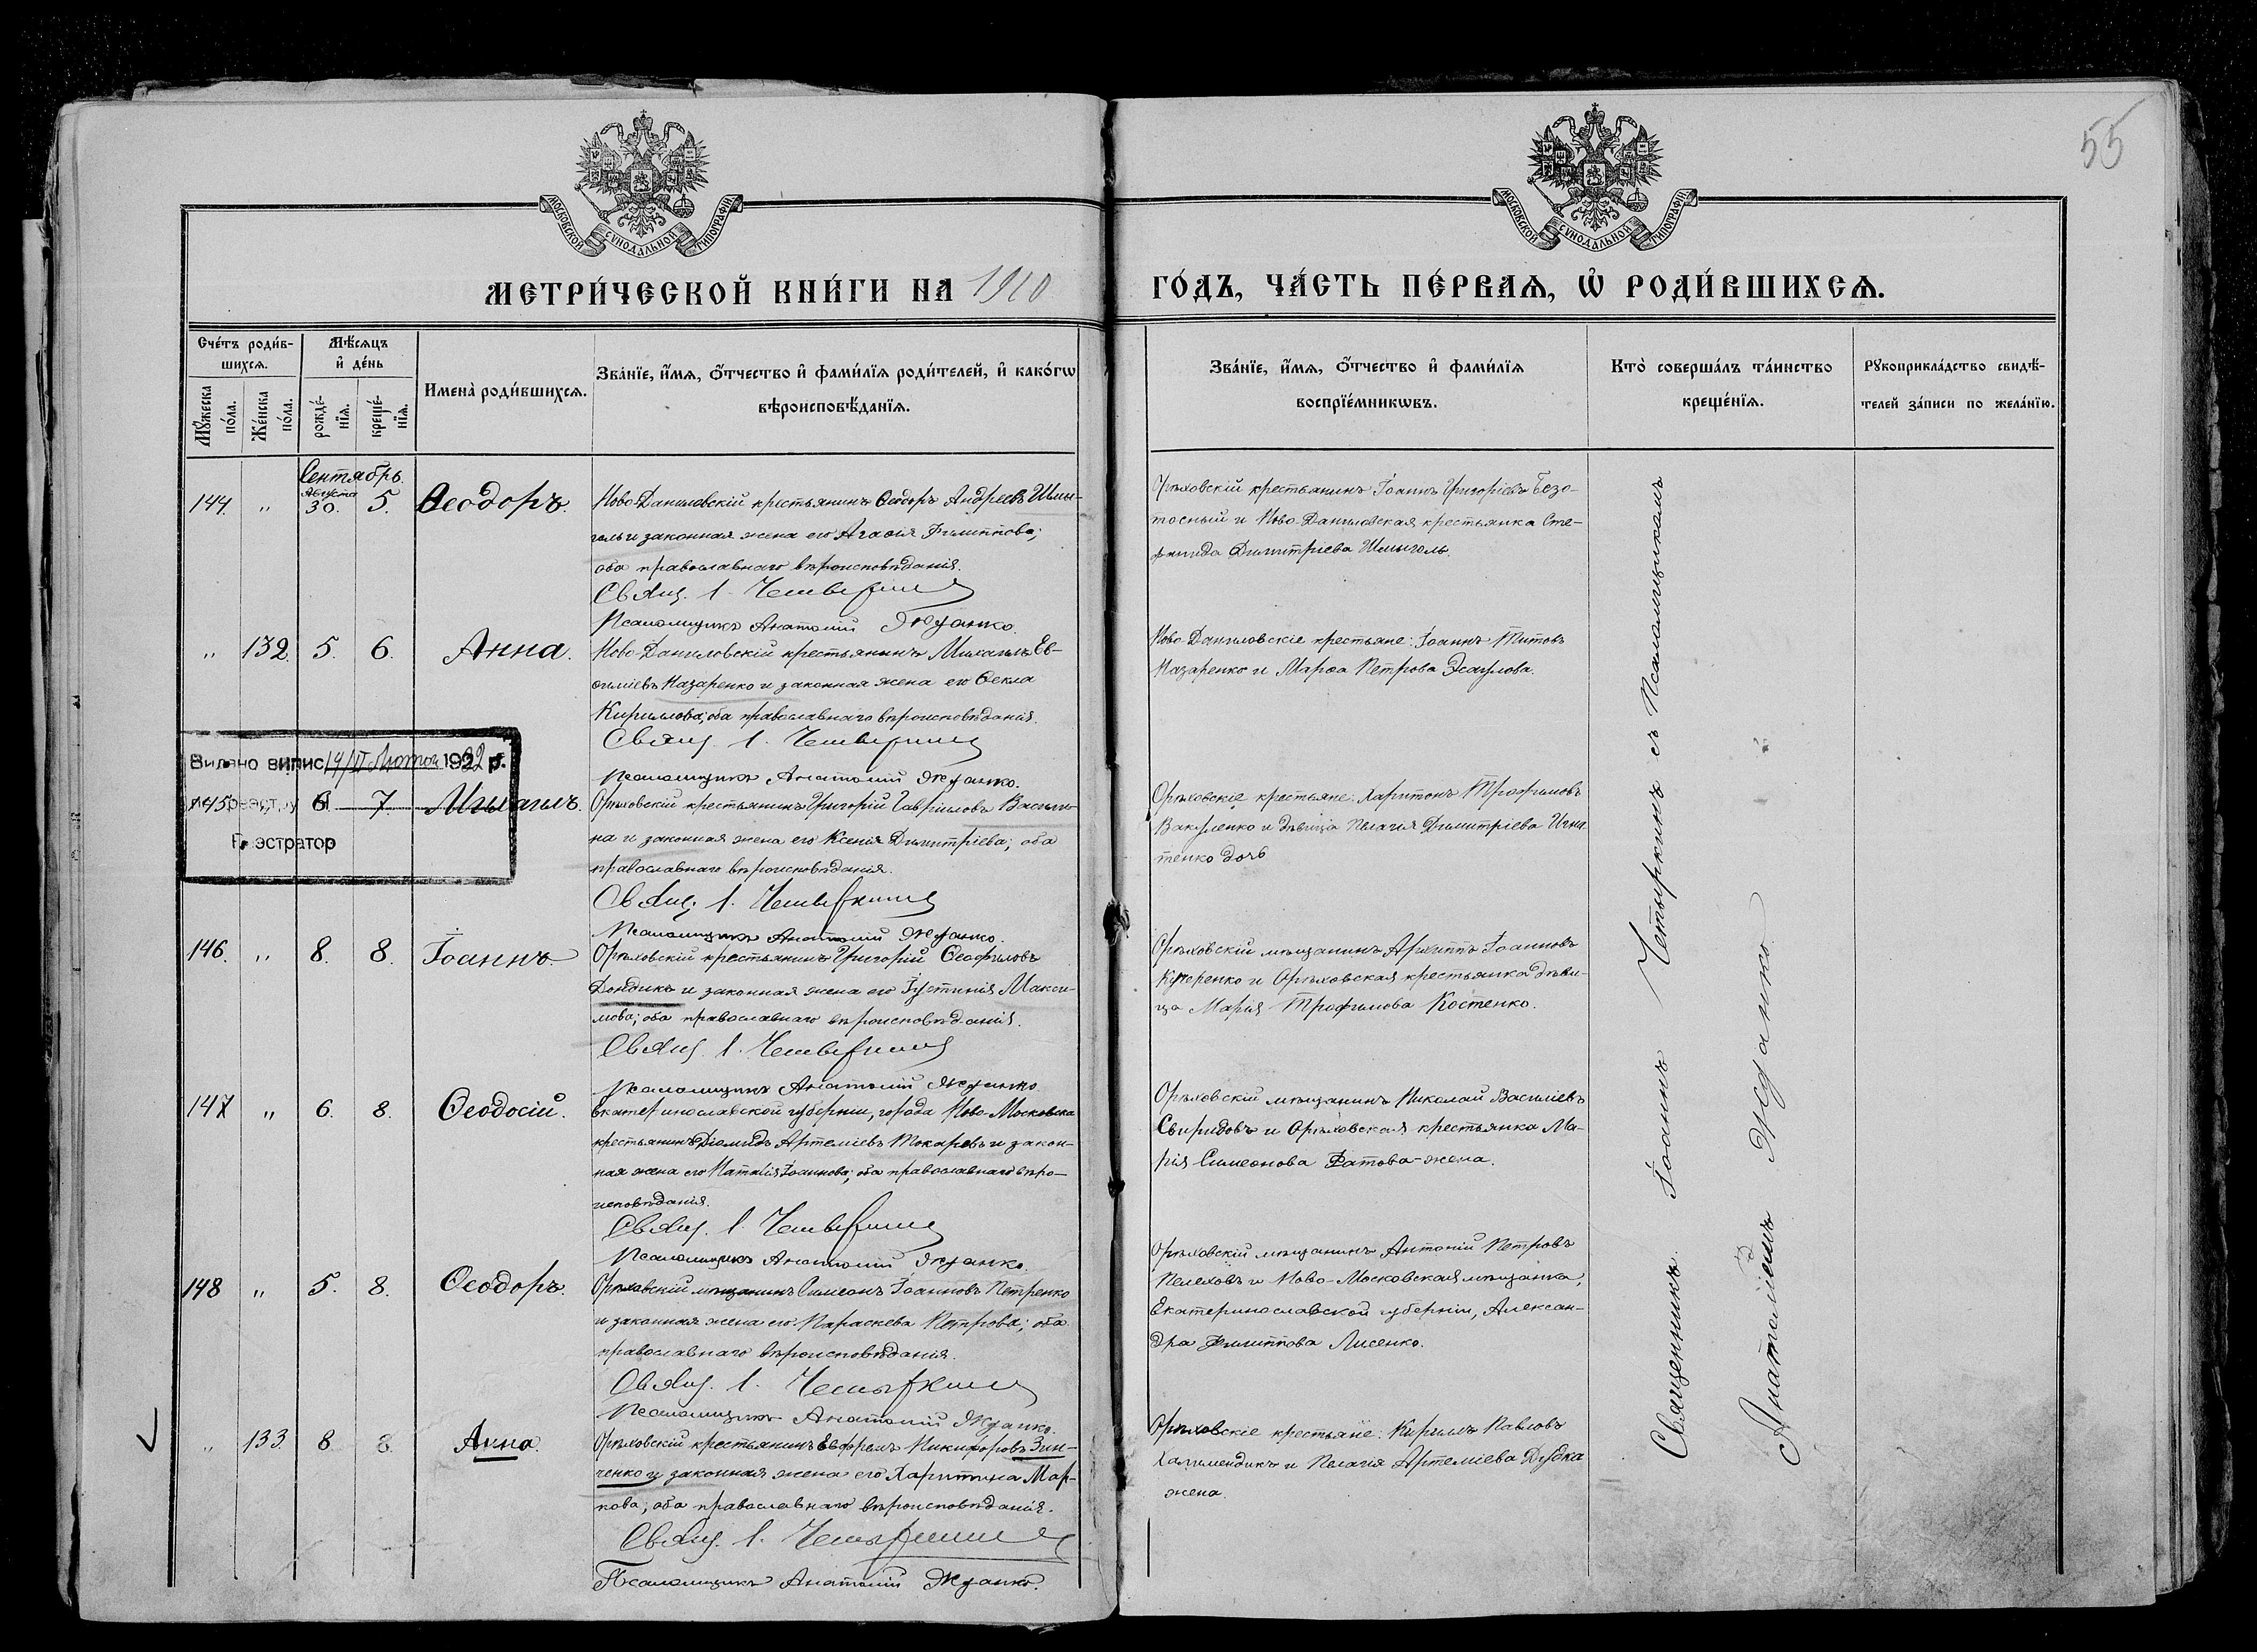 55
МОСКОВСКОЙ СѴНОДАЛЬНОЙ ТИПОГРАФІИ
МОСКОВСКОЙ СѴНОДАЛЬНОЙ ТИПОГРАФІИ
МЕТРИ́ЧЕСКОЙ КНИ́ГИ НА 1910
ГО́ДЪ, ЧА́СТЬ ПЕ́РВАѦ, Ѡ҆ РОДИ́ВШИХСѦ.
Сче́тъ роди́в-
шихсѧ.
Мꙋ́жеска
по́ла.
Же́нска
по́ла.
Мѣ́сѧцъ
и҆ де́нь
рожде́-
нїѧ.
креще́-
нїѧ.
Имена̀ роди́вшихсѧ.
Зва́нїе, и҆́мѧ, ѻ҆́тчество и҆ фами́лїѧ роди́телей, и҆ како́гѡ
вѣроисповѣ́данїѧ.
Зва́нїе, и҆́мѧ, ѻ҆́тчество и҆ фами́лїѧ
воспрїе́мникѡвъ.
Кто̀ соверша́лъ та́инство
креще́нїѧ.
Рꙋкоприкла́дство свидѣ́-
телей за́писи по жела́нїю.
Сентябрь.
144. „ Августа 30. 5. Ѳеодоръ.
Ново-Даниловскій крестьянинъ Ѳеодоръ Андреевъ Шмы-
гль и законная жена его Агаѳія Филиппова;
оба православнаго вѣроисповѣданія.
Свящ. І. Четыркинъ
Псаломщикъ Анатолій Жданко.
Орѣховскій крестьянинъ Іоаннъ Григоріевъ Безо-
тосный и Ново-Даниловская крестьянка Сте-
фанида Димитріева Шмыголь.
„ 132. 5. 6. Анна.
Ново-Даниловскій крестьянинъ Михаилъ Ев-
ѳиміевъ Назаренко и законная жена его Ѳекла
Кириллова; оба православнаго вѣроисповѣданія.
Свящ. І. Четыркинъ
Псаломщикъ Анатолій Жданко.
Ново-Даниловскіе крестьяне: Іоаннъ Титовъ
Назаренко и Марѳа Петрова Эсаулова.
Видано випис 19/VI Лютого 1922 р.
реэстру №
Реэстратор
145. „ 6 7. Михаилъ.
Орѣховскій крестьянинъ Григорій Гавриловъ Васили-
на и законная жена его Ксенія Димитріева; оба
православнаго вѣроисповѣданія.
Свящ. І. Четыркинъ
Псаломщикъ Анатолій Жданко.
Орѣховскіе крестьяне: Харитонъ Трофимовъ
Вакуленко и дѣвица Пелагія Димитріева Игна
тенко дочь
146. „ 8. 8. Іоаннъ.
Орѣховскій крестьянинъ Григорій Ѳеофиловъ
Дондикъ и законная жена его Іустинія Макси-
мова; оба православнаго вѣроисповѣданія.
Свящ. І. Четыркинъ
Псаломщикъ Анатолій Жданко
Орѣховскій мѣщанинъ Архиппъ Іоанновъ
Кучеренко и Орѣховская крестьянка дѣви-
ца Марія Трофимова Костенко.
147 „ 6. 8. Ѳеодосій.
Екатеринославской губерніи, города Ново-Московска
крестьянинъ Діомидъ Артеміевъ Токаревъ и закон-
ная жена его Наталія Іоаннова; оба православнаго вѣро-
исповѣданія.
Свящ. І. Четыркинъ
Псаломщикъ Анатолій Жданко.
Орѣховскій мѣщанинъ Николай Василіевъ
Свиридовъ и Орѣховская крестьянка Ма-
рія Симеонова Фатова-жена.
148 „ 5. 8. Ѳеодоръ.
Орѣховскій мѣщанинъ Симеонъ Іоанновъ Петренко
и законная жена его Параскева Петрова; оба
православнаго вѣроисповѣданія.
Свящ. І. Четыркинъ
Псаломщикъ Анатолій Жданко.
Орѣховскій мѣщанинъ Антоній Петровъ
Пелеховъ и Ново-Московская мѣщанка,
Екатеринославской губерніи, Алексан-
дра Филиппова Лисенко.
„ 133. 8. 8. Анна.
Орѣховскій крестьянинъ Евфремъ Никифоровъ Зин-
ченко и законная жена его Харитина Мар-
кова; оба православнаго вѣроисповѣданія.
Свящ. І. Четыркинъ
Псаломщикъ Анатолій Жданко.
Орѣховскіе крестьяне: Кириллъ Павловъ
Халимендикъ и Пелагія Артеміева Дудка
жена.
Священникъ Іоаннъ Четыркинъ съ Псаломщикомъ
Анатоліемъ Жданко